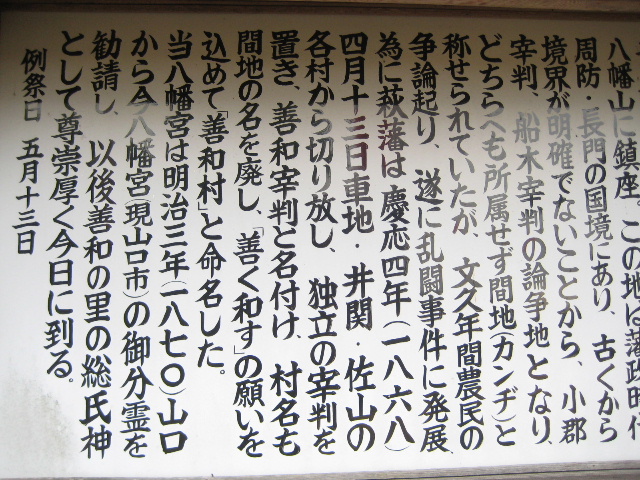 八幡山に鎮座 この地は藩政時代
周防・長門の国境にあり、古くから
境界が明確でないことから、小郡
宰判、船木宰判の論争地となり、
どちらへも所属せず間地(カンヂ)と
称せられていたが、文久年間農民の
争論起り、遂に乱闘事件に発展
為に萩藩は慶応四年(一八六八)
四月十三日車地・井関・佐山の
各村から切り放し、独立の宰判を
置き、善和宰判と名付け、村名も
間地の名を廃し、「善く和す」の願いを
込めて「善和村」と命名した。
当八幡宮は明治三年(一八七〇)山口
から今八幡宮(現山口市)の御分霊を
勧請し、以後善和の里の総氏神
として尊崇厚く今日に到る。
例祭日 五月十三日